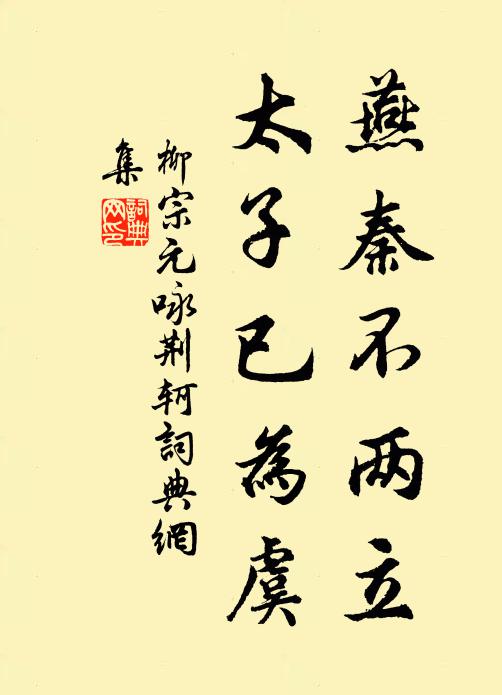 燕秦不两立
太子已為虞
柳宗元咏荆轲詞典網
集
詞典
网印